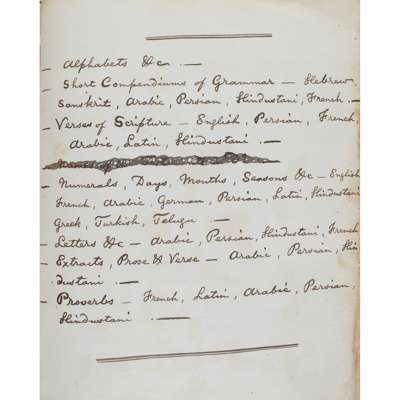 – Alphabets &c. —
– Short Compendiums of Grammar – Hebrew,
Sanskrit, Arabic, Persian, Hindustani, French. —
– Verses of Scripture – English, Persian, French,
Arabic, Latin, Hindustani. —
– Numerals, Days, Months, Seasons &c – English
French, Arabic, German, Persian, Latin, Hindustani
Greek, Turkish, Telugu. —
– Letters &c – Arabic, Persian, Hindustani, French
– Extracts, Prose & Verse – Arabic, Persian, Hin
dustani. —
– Proverbs – French, Latin, Arabic, Persian,
Hindustani. —